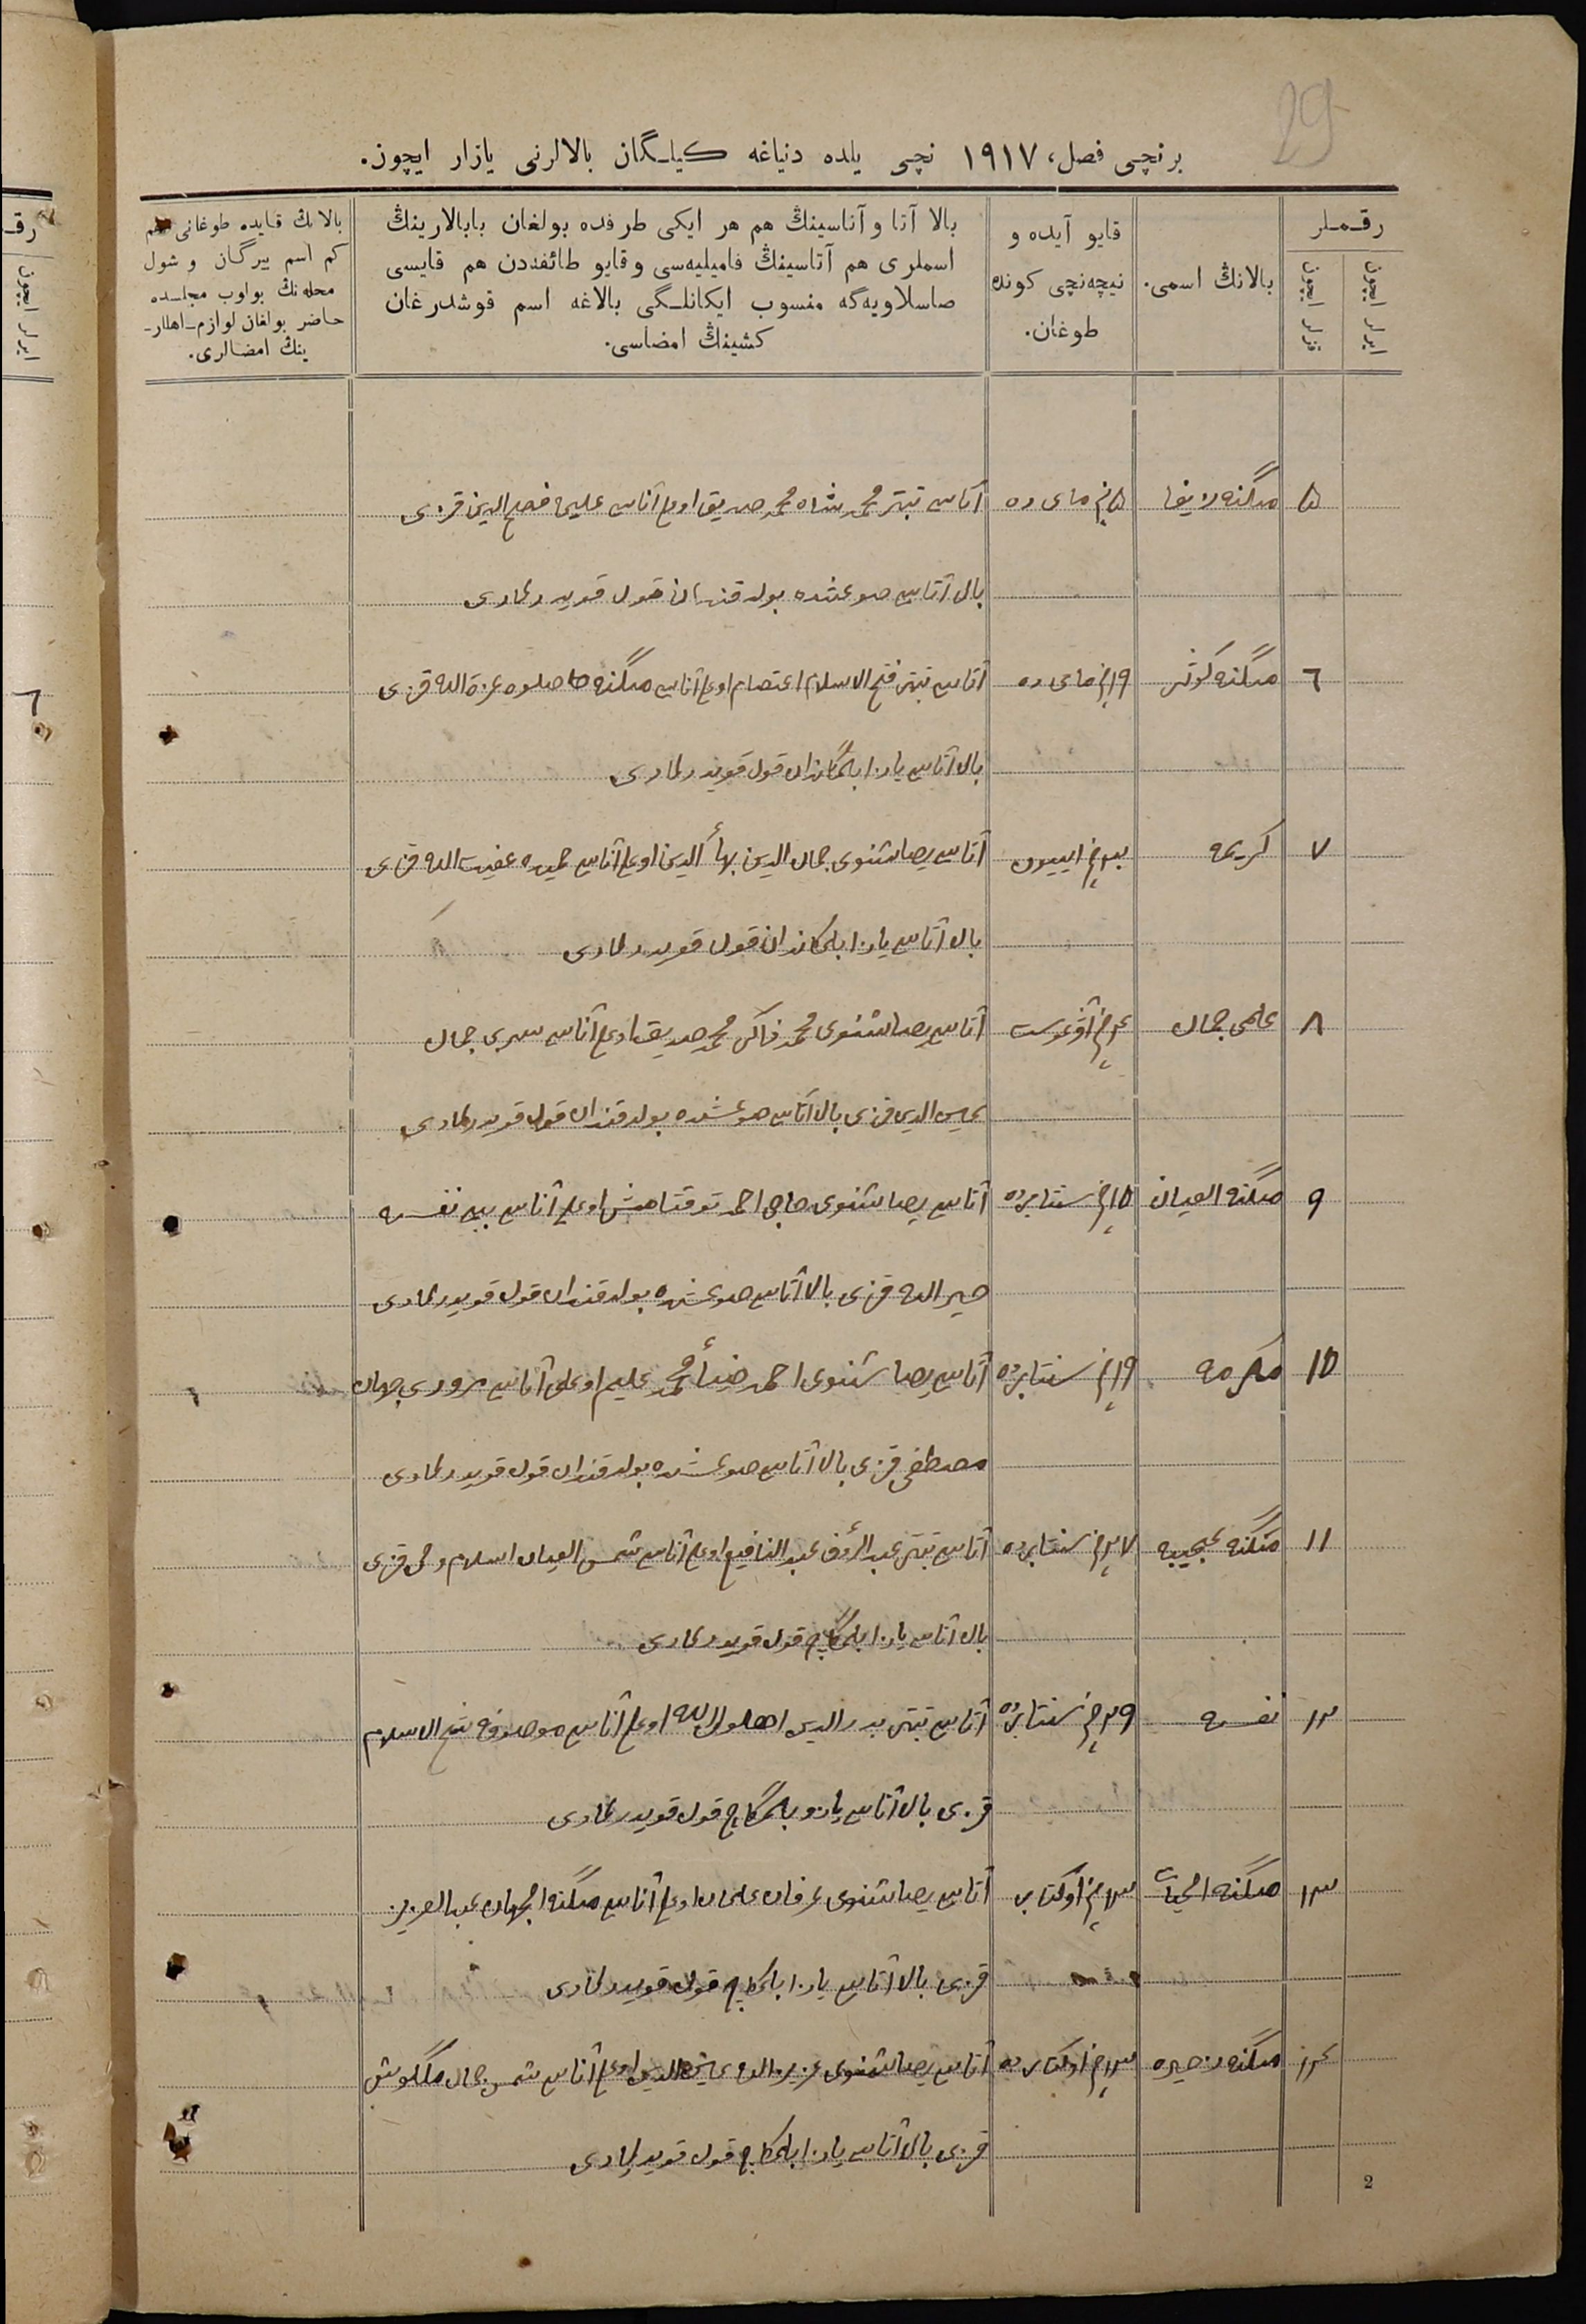 29
برنچی فصل، ١٩١٧ نچی یلده دنیاغه کیلگان بالالرنی یازار ایچون.
رقملر
ایرلر ایچون
قزلر ایچون
بالانڭ اسمی.
قایو آیده و
نیچه‌نچی کونده
طوغان.
بالا آتا و آناسینڭ هم هر ایکی طرفده بولغان بابالارینڭ
اسملری هم آتاسینڭ فامیلیه‌سی و قایو طائفه‌دن هم قایسی
صاسلاویه‌گه منسوب ایکانلگی بالاغه اسم قوشدرغان
کشینڭ امضاسی.
بالانڭ قایده طوغانی هم
کم اسم بیرگان و شول
محله‌نڭ بولوب مجلسده
حاضر بولغان لوازم اهللار-
ینڭ امضالری.
٥ منگنه ٥ نچی مای ده آتاسی تبتر محمد شاه محمد صدیق اوغلی آناسی علیما فصلح الدین قزی
بالا آتاسی صوغشده بولدقندان قول قویدرلمادی
٦ منگنه کوثر ١٩ نچی مای ده آتاسی تبتر فتح الاسلام اعتصام اوغلی آناسی منگنه حاصلوه عزة الله قزی
بالا آتاسی یازا بلمگاندان قول قویدرلمادی
٧ کریمه ایییون آتاسی یصاشنوی جمال الدین بهاء الدین اوغلی آناسی حمیده عفیت الله قزی
بالا آتاسی یازا بلمگاندان قول قویدرلمادی
٨ علمی جمال آوغوست آتاسی یصاشنوی محمد ذاکر محمد صدیق اوغلی آناسی سری جمال
الدین قزی بالا آتاسی صوغشده بولدقندان قول قویدرلمادی
٩ منگنه العیان ١٥ نچی سنتابرده آتاسی یصاشنوی حاجی احمد توقتامش اوغلی آناسی بیبی نفسه
خیرالله قزی بالا آتاسی صوغشده بولدقندان قول قویدرلمادی
١٠ مکرمه ١٩ نچی سنتابرده آتاسی یصاشنوی احمد ضیاء محمد علیم اوغلی آناسی سروری جهان
مصطفی قزی بالا آتاسی صوغشده بولدقندان قول قویدرلمادی
١١ منگنه عجیبه ٢٧ نچی سنتابرده آتاسی تبتر عبد الرؤف عبد النافیع اوغلی آناسی شمس العیان اسلام قزی
بالا آتاسی یازا بلمگاچ قول قویدرلمادی
١٢ نفسه ٢٩ نچی سنتابرده آتاسی تبتر بدرالدین اهلولله اوغلی آناسی موصوفه فتح الاسلام
قزی بالا آتاسی یازو بلمگاچ قول قویدرلمادی
١٣ منگنه الحیات ١٣ نچی اوکتابر آتاسی یصاشنوی عرفان علمان اوغلی آناسی منگنه الجهان عبدالعزیز
قزی بالا آتاسی یازا بلمگاچ قول قویدرلمادی
١٤ منگنه زخیره ١٣ نچی اوکتابرده آتاسی یصاشنوی عزیز الله الدین اوغلی آناسی شمس جمال منگلوش
قزی بالا آتاسی یازا بلمگاچ قول قویدرلمادی
2
رقـ
ایرلر ایچون
٦